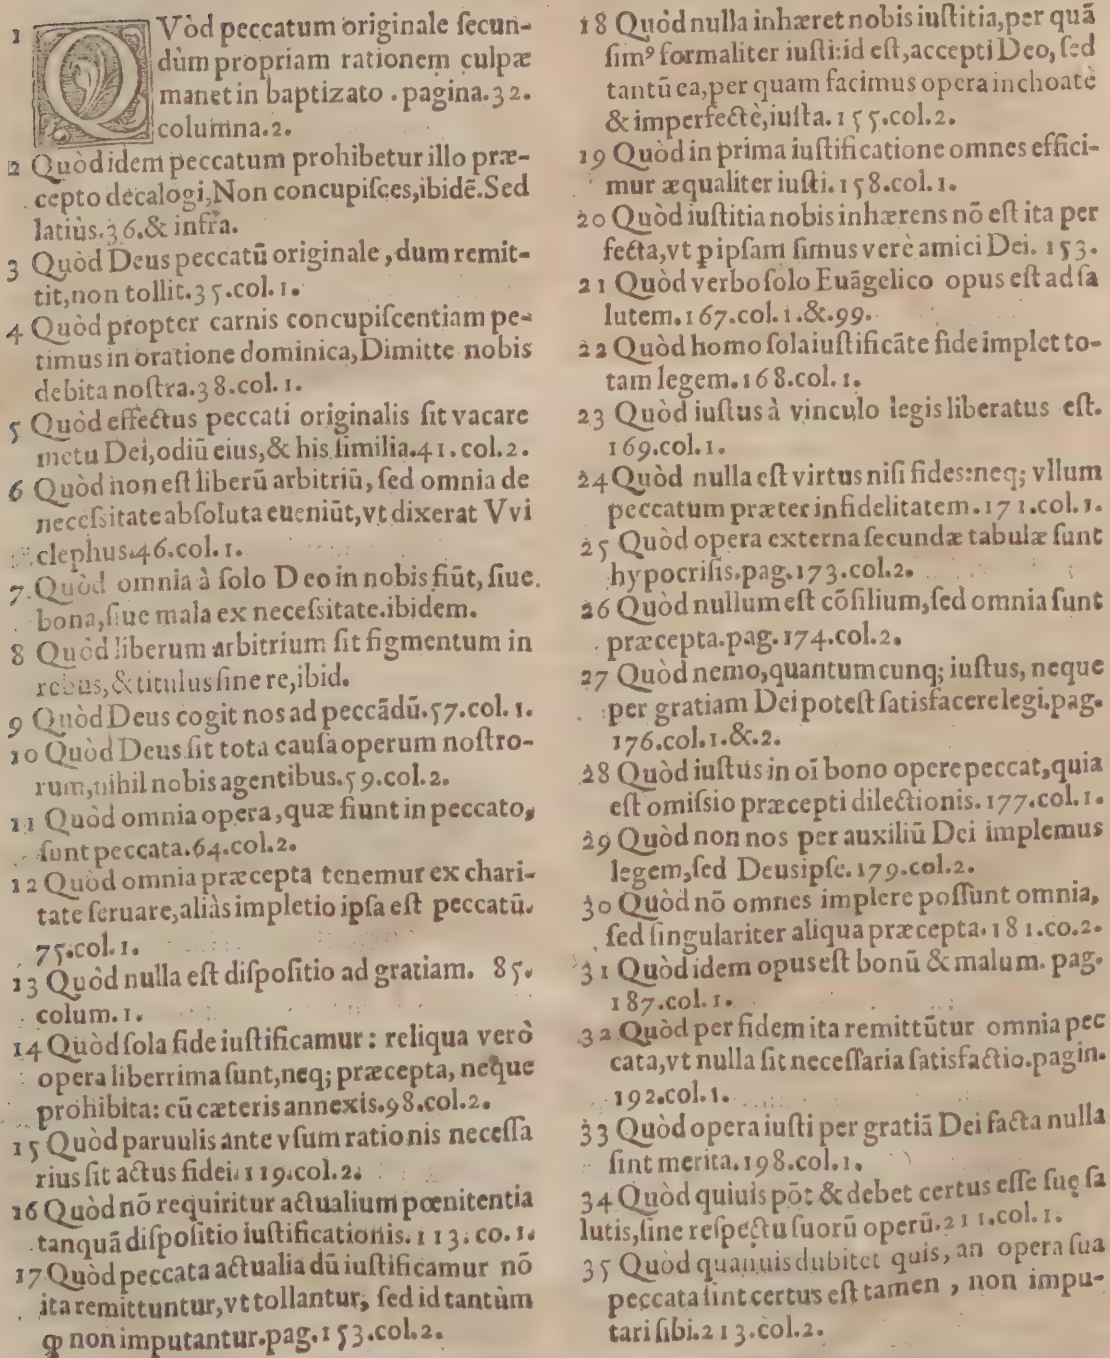 1 QVòd peccatum originale ſecun-
dùm propriam rationem culpæ
manet in baptizato . pagina.32.
columna.2.
2 Quòd idem peccatum prohibetur illo præ-
cepto decalogi, Non concupiſces, ibidē. Sed
latiùs.36.& infra.
3 Quòd Deus peccatū originale , dum remit-
tit, non tollit.35.col.1.
4 Quòd propter carnis concupiſcentiam pe-
timus in oratione dominica, Dimitte nobis
debita noſtra.38.col.1.
5 Quòd effectus peccati originalis ſit vacare
metu Dei, odiū eius, & his ſimilia.41.col.2.
6 Quòd non eſt liberū arbitriū, ſed omnia de
neceſsitate abſoluta eueniūt, vt dixerat Vvi
clephus.46.col.1.
7. Quòd omnia à ſolo Deo in nobis fiūt, ſiue
bona, ſiue mala ex neceſsitate. ibidem.
8 Quòd liberum arbitrium ſit figmentum in
rebus, & titulus ſine re, ibid.
9 Quòd Deus cogit nos ad peccādū.57.col.1.
10 Quòd Deus ſit tota cauſa operum noſtro-
rum, nihil nobis agentibus.59.col.2.
11 Quòd omnia opera, quæ fiunt in peccato,
ſunt peccata.64.col.2.
12 Quòd omnia præcepta tenemur ex chari-
tate ſeruare, aliàs impletio ipſa eſt peccatū.
75.col.1.
13 Quòd nulla eſt diſpoſitio ad gratiam. 85.
colum.1.
14 Quòd ſola fide iuſtificamur : reliqua verò
opera liberrima ſunt, neq; præcepta, neque
prohibita: cū cæteris annexis.98.col.2.
15 Quòd paruulis ante vſum rationis neceſſa
rius ſit actus fidei. 119.col.2.
16 Quòd nō requiritur actualium pœnitentia
tanquā diſpoſitio iuſtificationis. 113. co. 1.
17 Quòd peccata actualia dū iuſtificamur nō
ita remittuntur, vt tollantur, ſed id tantùm
ꝙ non imputantur. pag.153.col.2.
18 Quòd nulla inhæret nobis iuſtitia, per quā
ſimꝰ formaliter iuſti: id eſt, accepti Deo, ſed
tantū ea, per quam facimus opera inchoatè
& imperfectè, iuſta. 155.col.2.
19 Quòd in prima iuſtificatione omnes effici-
mur æqualiter iuſti.158.col.1.
20 Quòd iuſtitia nobis inhærens nō eſt ita per
fecta, vt ꝑ ipſam ſimus verè amici Dei. 153.
21 Quòd verbo ſolo Euāgelico opus eſt ad ſa
lutem.167.col.1.&.99.
22 Quòd homo ſola iuſtificāte fide implet to-
tam legem.168.col.1.
23 Quòd iuſtus à vinculo legis liberatus eſt.
169.col.1.
24 Quòd nulla eſt virtus niſi fides: neq; vllum
peccatum præter infidelitatem.171.col.1.
25 Quòd opera externa ſecundæ tabulæ ſunt
hypocriſis. pag.173.col.2.
26 Quòd nullum eſt cōſilium, ſed omnia ſunt
præcepta. pag. 174.col.2.
27 Quòd nemo, quantumcunq; iuſtus, neque
per gratiam Dei poteſt ſatisfacere legi. pag.
176.col.1.&.2.
28 Quòd iuſtus in oī bono opere peccat, quia
eſt omiſsio præcepti dilectionis. 177.col.1.
29 Quòd non nos per auxiliū Dei implemus
legem, ſed Deus ipſe.179.col.2.
30 Quòd nō omnes implere poſſunt omnia,
ſed ſingulariter aliqua præcepta. 181.co.2.
31 Quòd idem opus eſt bonū & malum. pag.
187.col.1.
32 Quòd per fidem ita remittūtur omnia pec
cata, vt nulla ſit neceſſaria ſatisfactio. pagin.
192.col.1.
33 Quòd opera iuſti per gratiā Dei facta nulla
ſint merita. 198.col.1.
34 Quòd quiuis pōt & debet certus eſſe ſuę ſa
lutis, ſine reſpectu ſuorū operū.211.col.1.
35 Quòd quanuis dubitet quis, an opera ſua
peccata ſint certus eſt tamen , non impu-
tari ſibi.213.col.2.